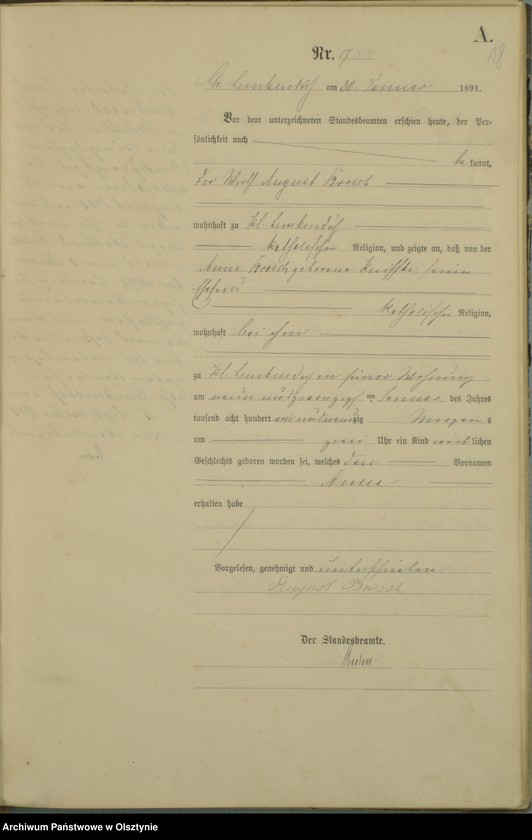 A.
18
Nr. 17
Gr. Lemkendorf am 30. Januar 1891.
Vor dem unterzeichneten Standesbeamten erschien heute, der Per-
sönlichkeit nach
be kannt,
der Wirth August Brosch
wohnhaft zu Kl. Lemkendorf
katholischer Religion, und zeigte an, daß von der
Anna Brosch geborene seiner
Ehefrau
katholischer Religion,
wohnhaft bei ihm
zu Kl. Lemkendorf in seiner Wohnung
am neun und zwanzigsten Januar des Jahres
tausend acht hundert ein und neunzig Morgen s
um zwei Uhr ein Kind weiblichen
Geschlechts geboren worden sei, welches den Vornamen
Anna
erhalten habe
Vorgelesen, genehmigt und unterschrieben
August Brosch
Der Standesbeamte.
Archiwum Państwowe w Olsztynie